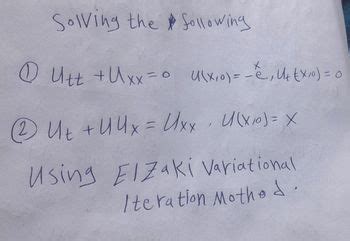 Solving the following
① Utt + Uxx = 0 U(x,0) = -e^x, Ut(x,0) = 0
② Ut + UUx = Uxx , U(x,0) = x
Using ElZaki Variational
Iteration Mothod.